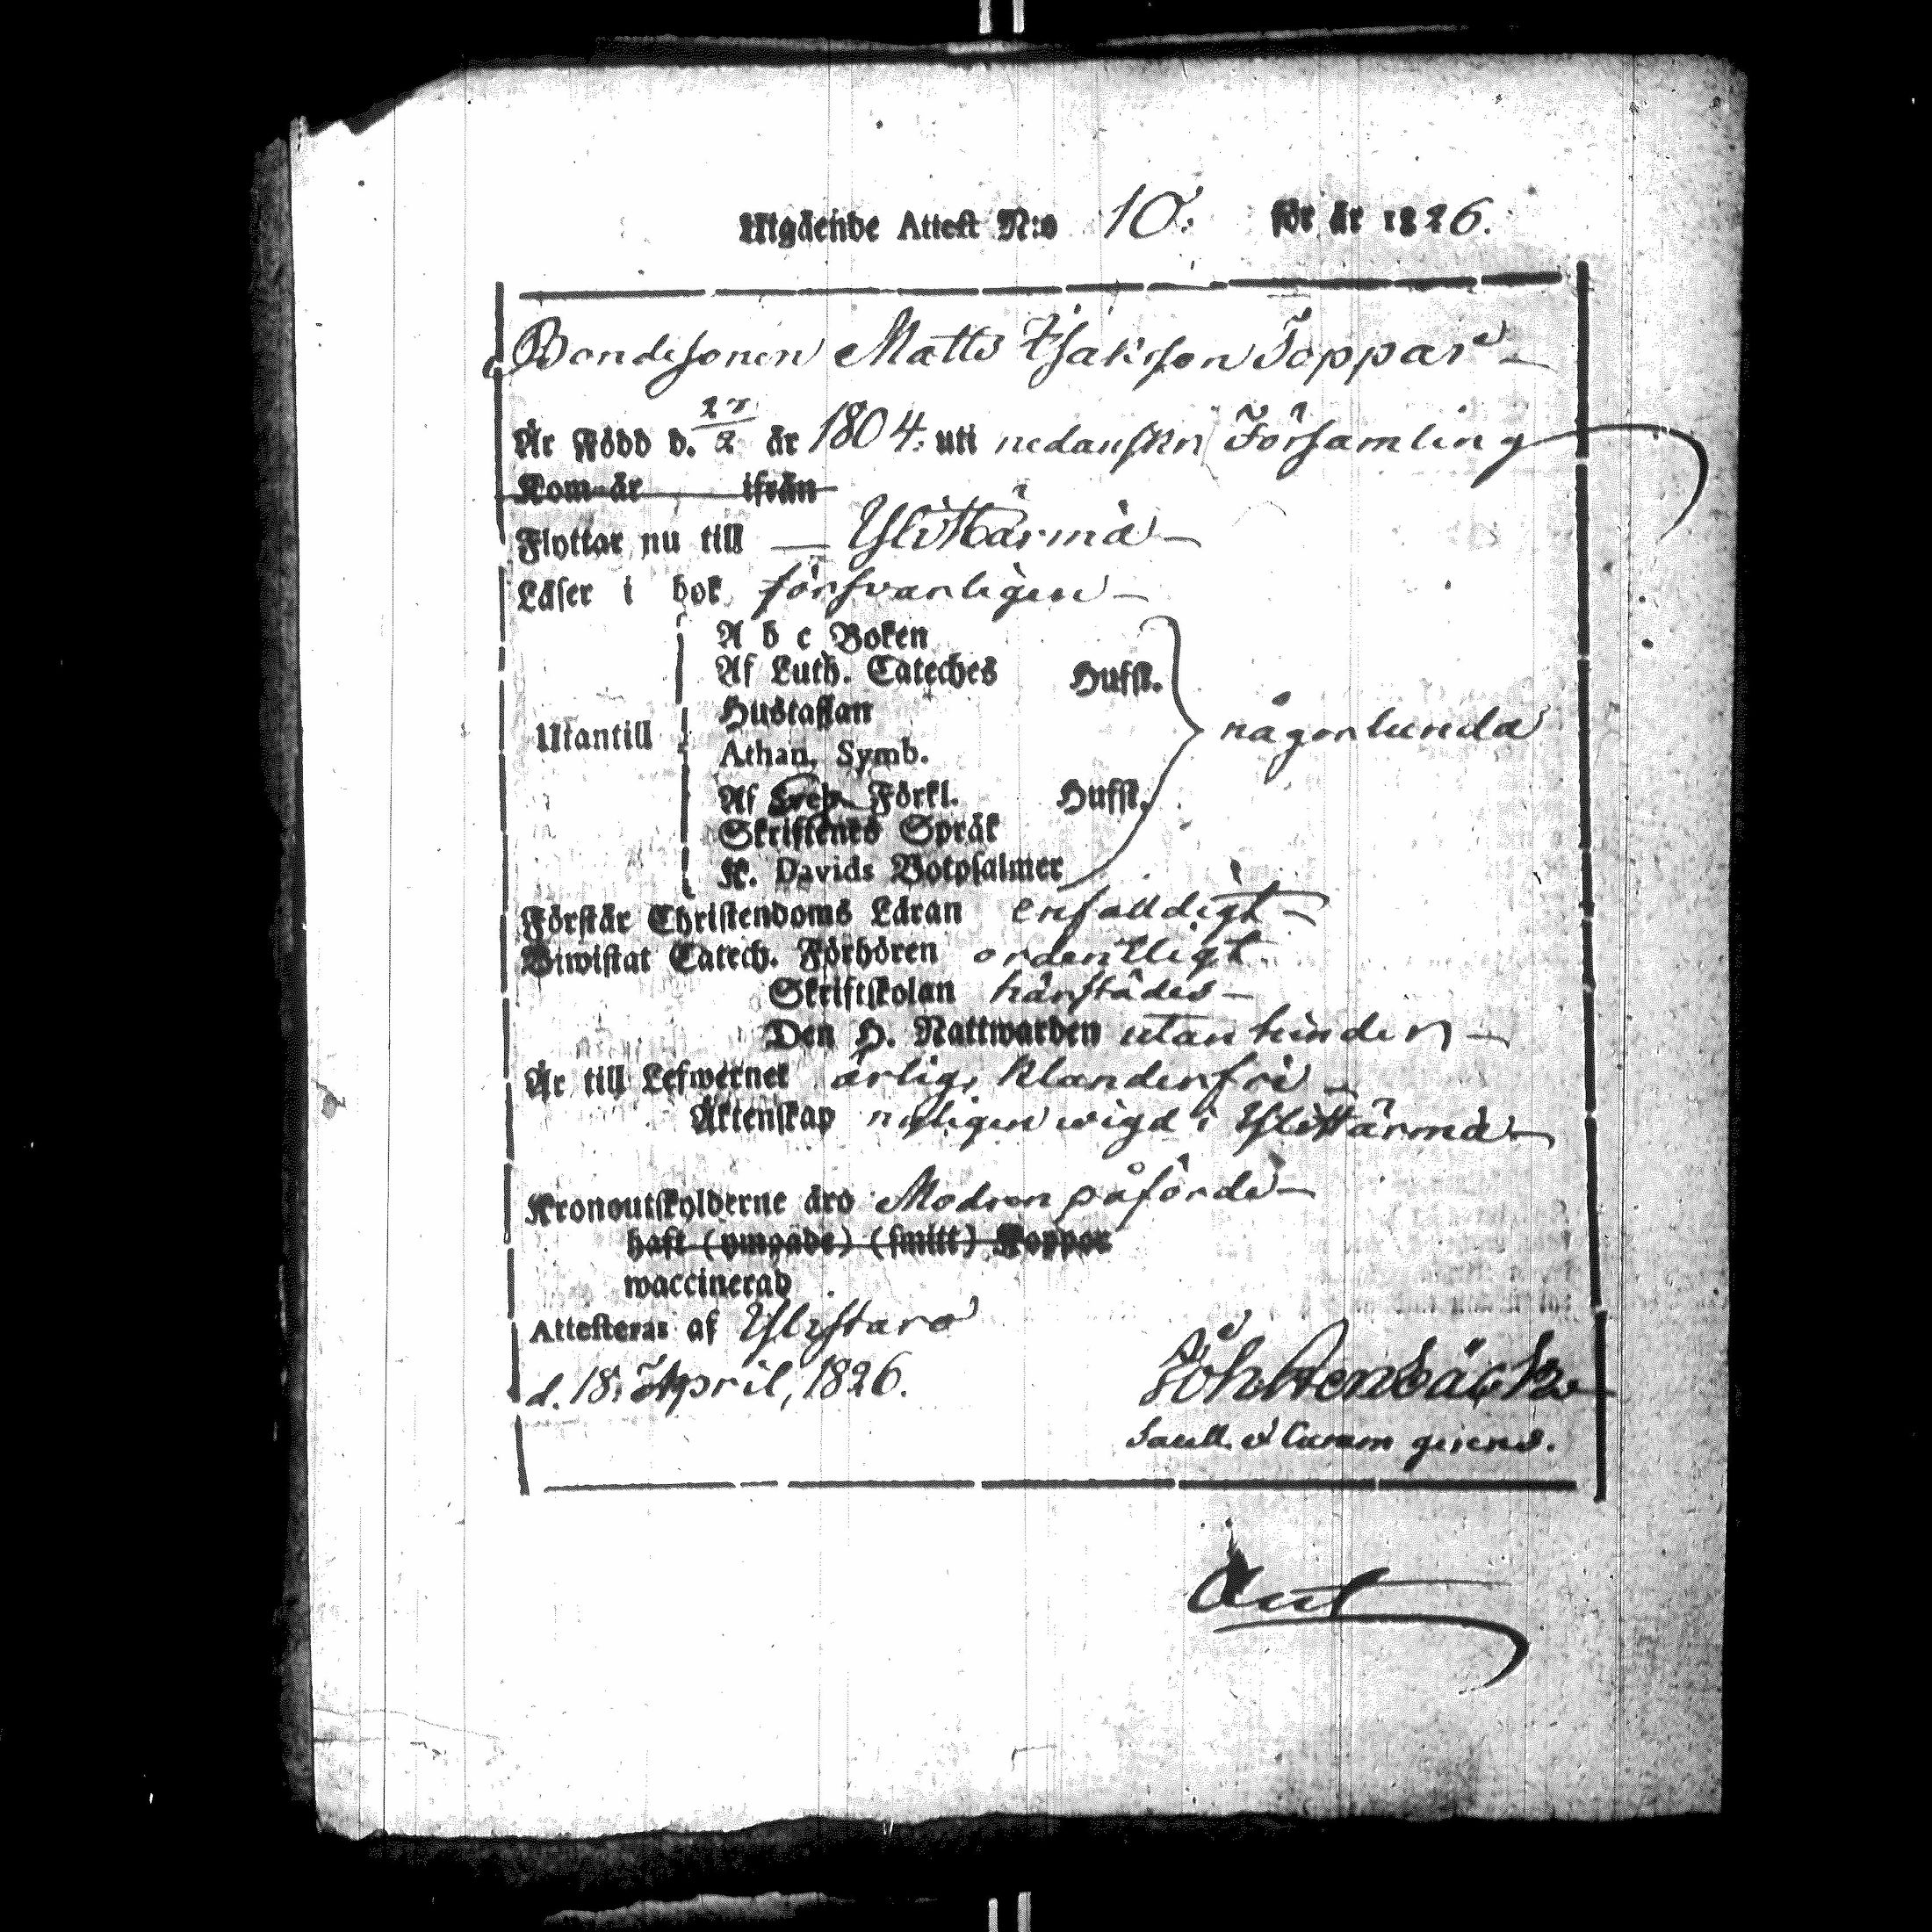 Utgående Attest N:o 10. för år 1826.
Bondesonen Matts Isaksson Toppar
Är Född d. 27/2 år 1804. uti nedanskn Församling
Kom år ifrån
Flyttar nu till Ylihärmä
Läser i bok försvarligen
A b c Boken
Af Luth. Cateches Hufst.
Hustaflan
Utantill
Athan. Symb. någorlunda
Af Förkl. Hufst.
Skriftenes Språk
K. Davids Botpsalmer
Förstår Christendoms Läran enfaldigt
Biwistat Catech. Förhören ordentligt
Skriftskolan härstädes
Den H. Nattwarden utan hinder
Är till Lefwernet ärlig, klanderfri
Äktenskap nyligen wigd i Ylihärmä
Kronoutskylderne äro Modren påförde
haft (ymgade) (smitt) Koppor
waccinerad
Attesteras af Ylistaro
d. 18. April, 1826.
Sacell. et Curam gerens.